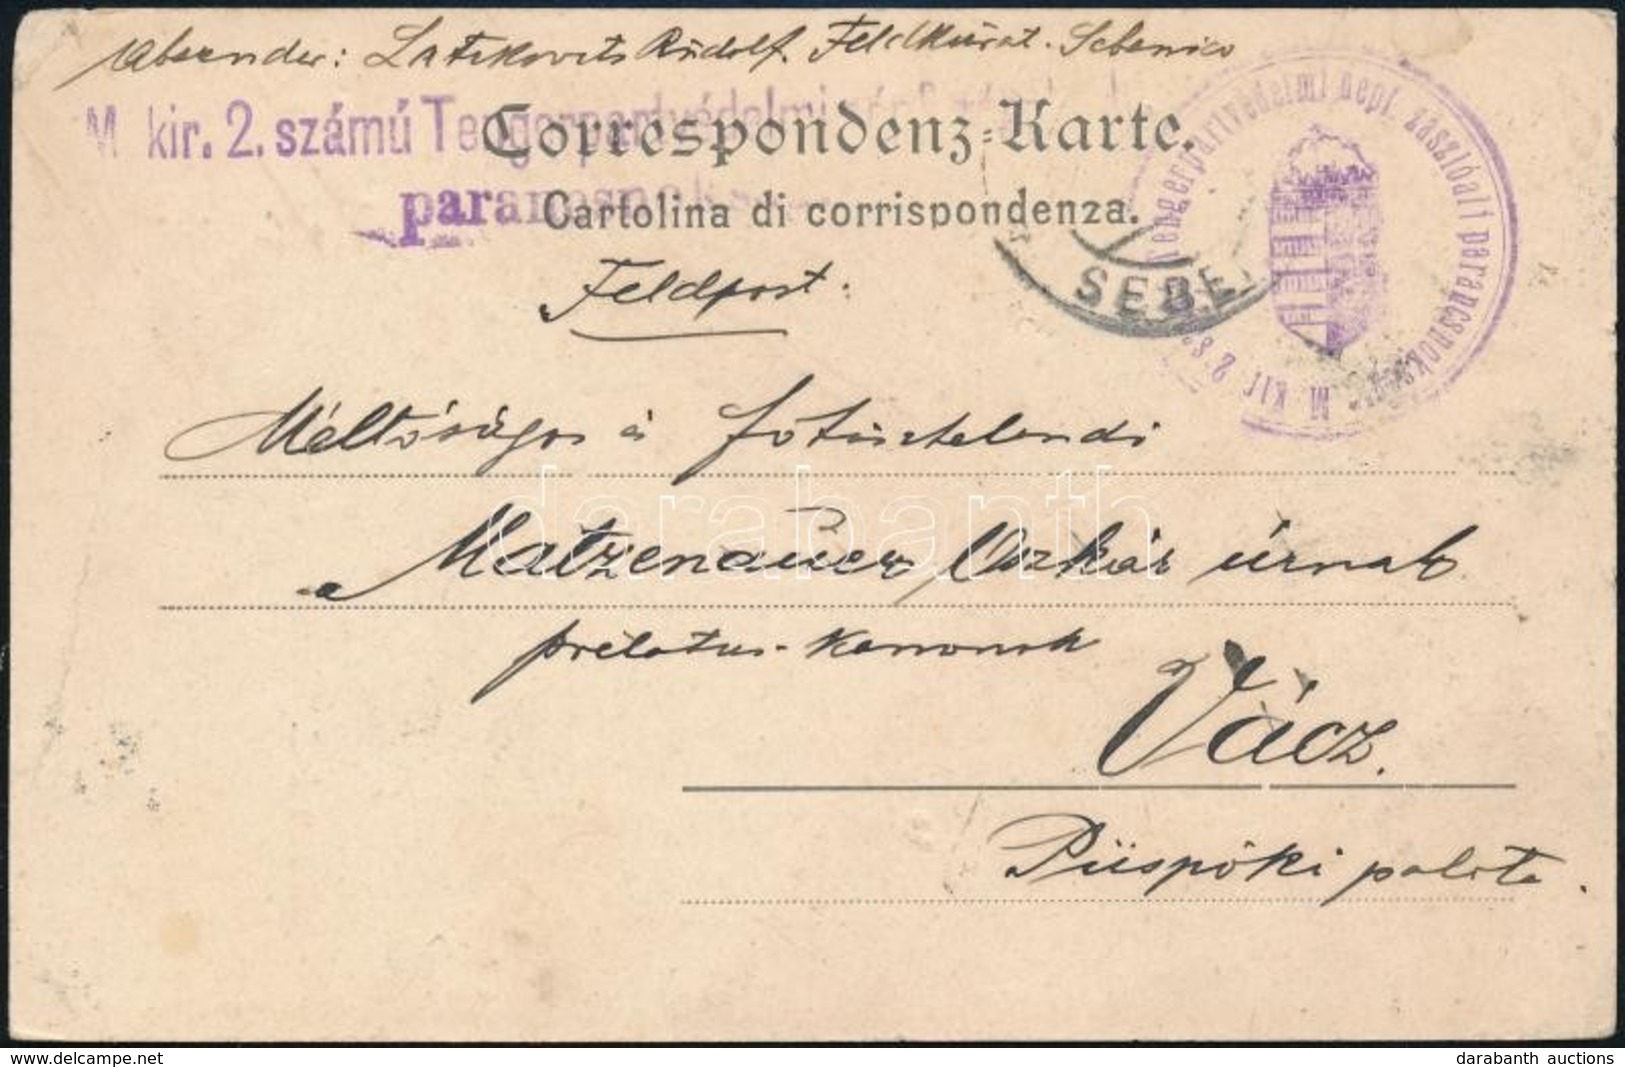 Absender: Latzkovits Rudolf. Feldkurat. Sebenico
M kir. 2. számú Tengerpartvédelmi
Correspondenz-Karte.
parancsnok
Cartolina di corrispondenza.
M kir 2 sz Tengerpartvédelmi népf. zászlóalj parancsnok
SEBE
Feldpost.
Méltóságos és főtisztelendő
Matzenauer Oszkár úrnak
prelátus-kanonok
Vácz.
Püspöki palota.
darabanth
delcampe.net
darabanth auctions